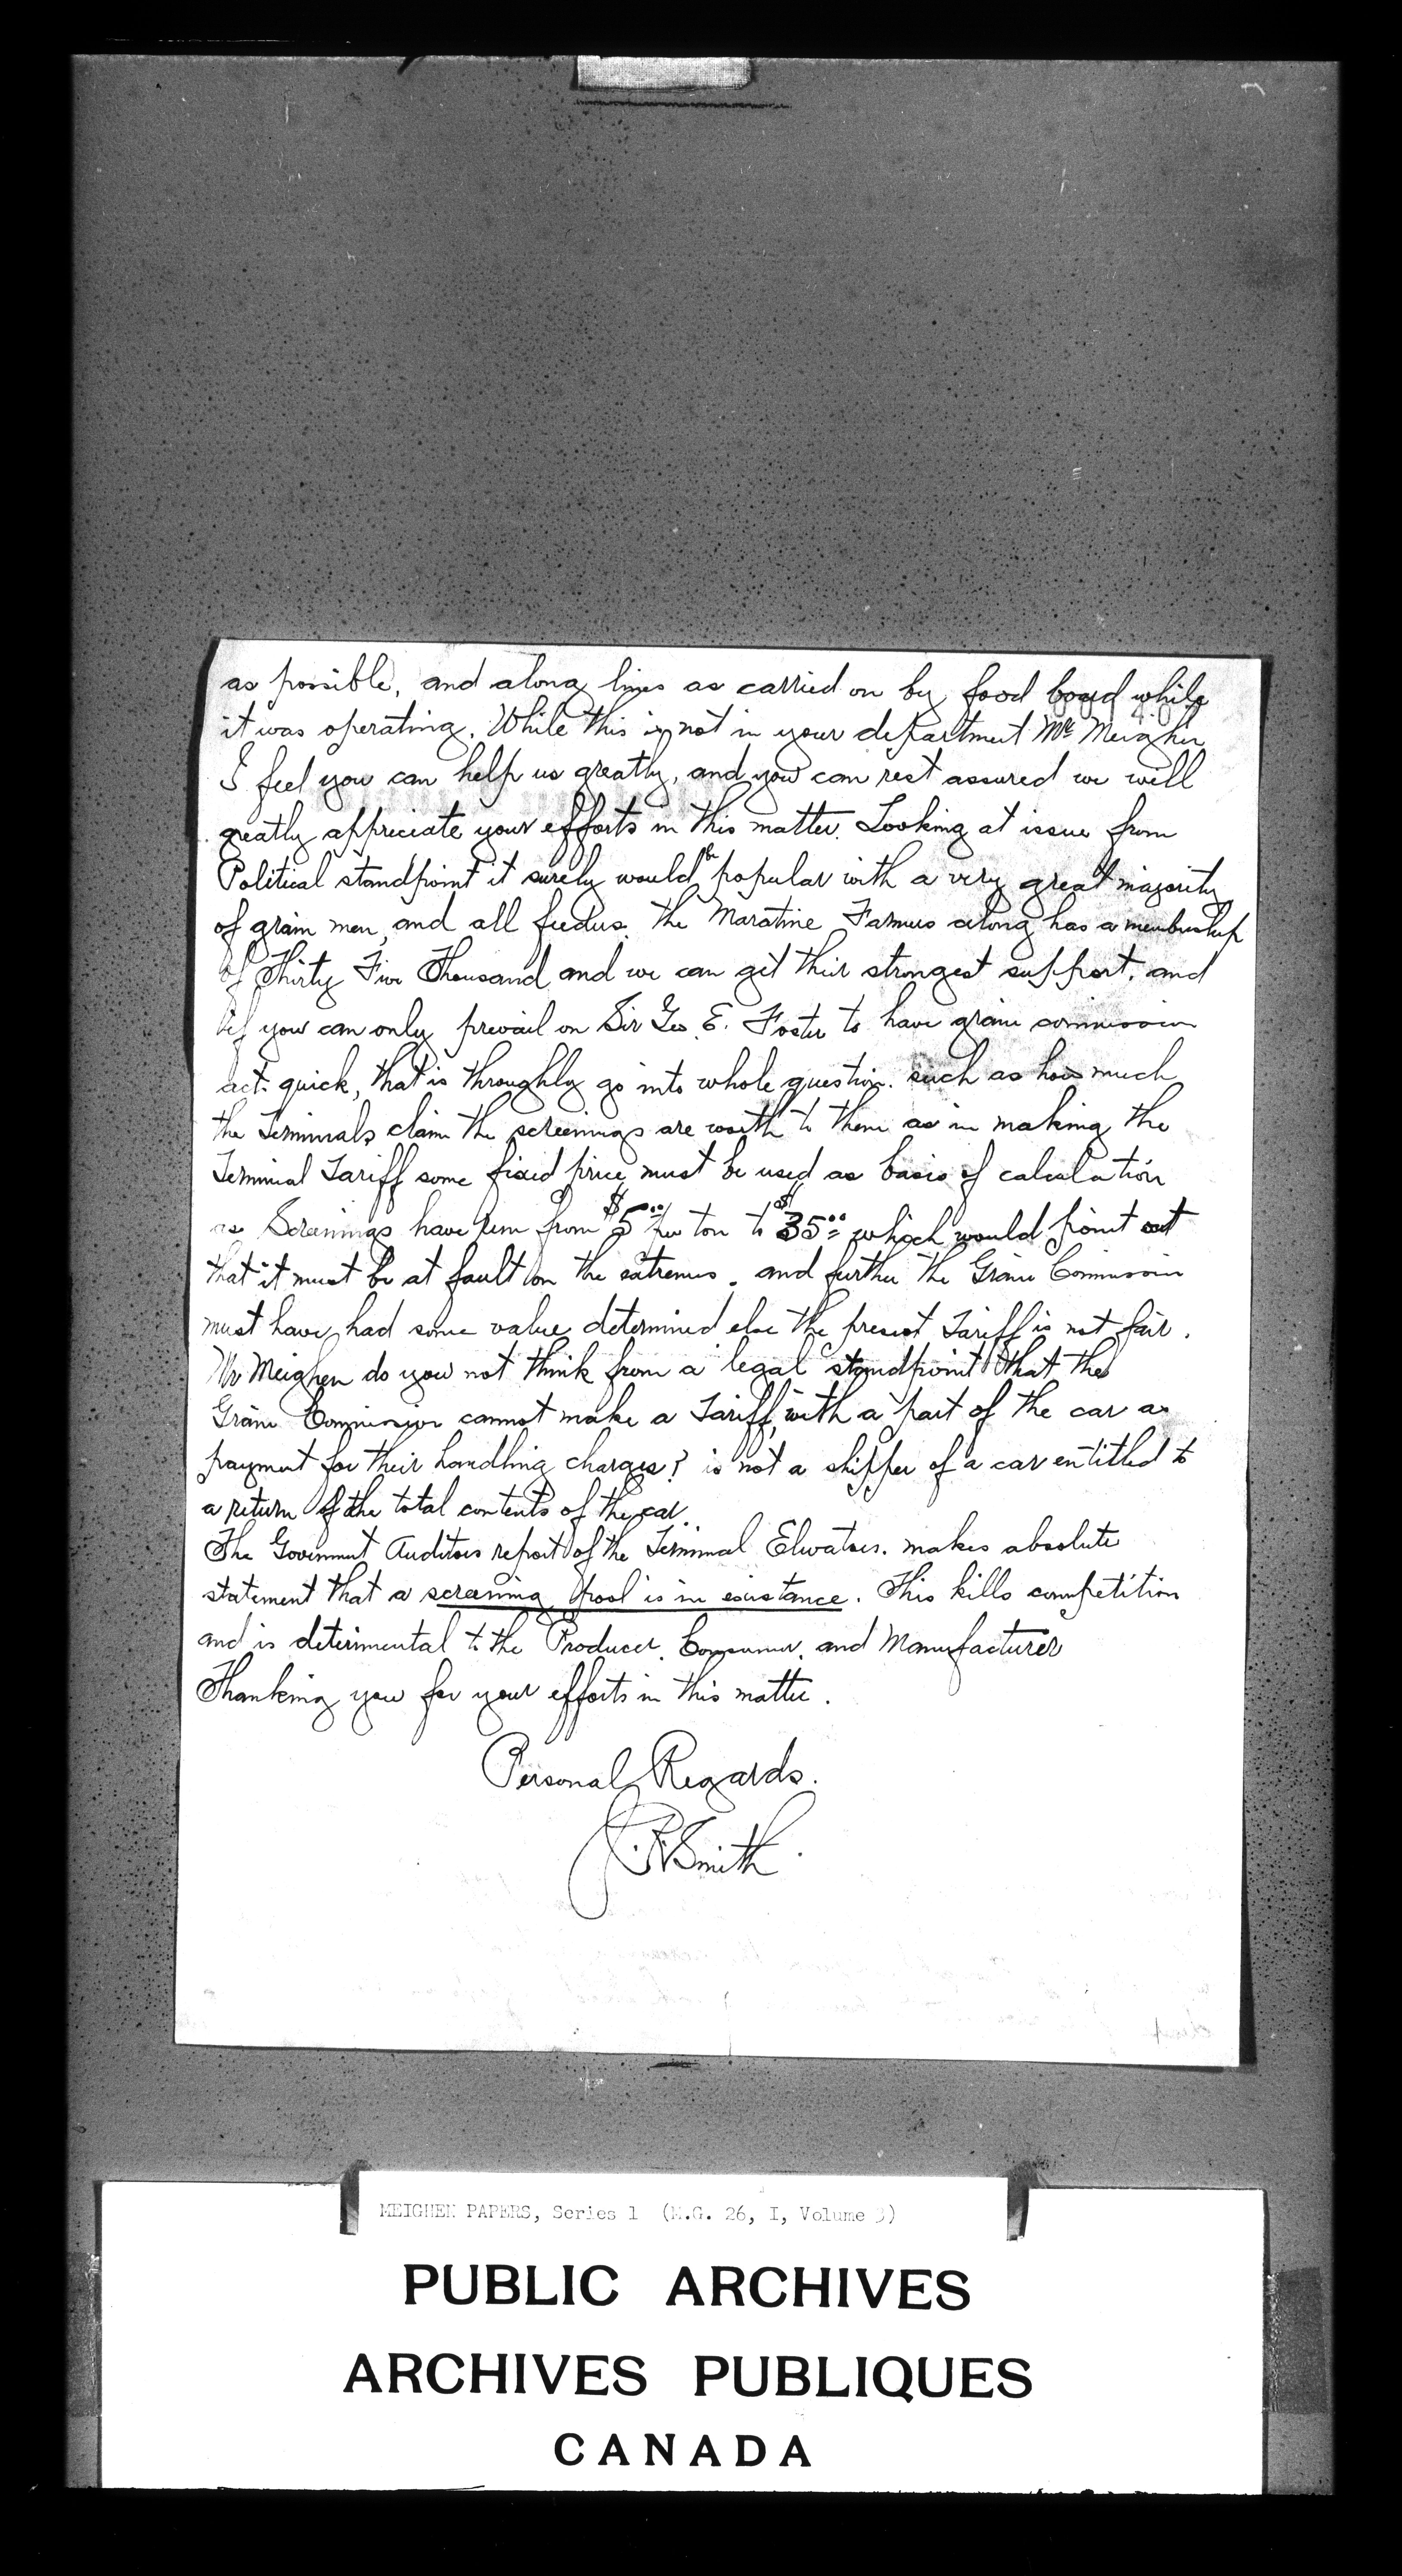 as possible, and along lines as carried on by food board while
it was operating. While this is not in your department Mr Meighen
I feel you can help us greatly, and you can rest assured we will
greatly appreciate your efforts in this matter. Looking at issue from
Political standpoint it surely would be popular with a very great majority
of grain men, and all feeders. The Maratine Farmers along has a membership
of Thirty Five Thousand and we can get their strongest support, and
if you can only prevail on Sir Geo. E. Foster to have grain commission
act quick, that is throughly go into whole question. such as how much
the Terminals claim the screenings are worth to them as in making the
Terminal Tariff some fixed price must be used as basis of calculation
as Screenings have run from $5.00 per ton to $35.00 which would point out
that it must be at fault on the extremes. and further the Grain Commission
must have had some value determined else the present Tariff is not fair.
Mr Meighen do you not think from a legal standpoint that the
Grain Commission cannot make a Tariff, with a part of the car as
payment for their handling charges? is not a shipper of a car entitled to
a return of the total contents of the car.
The Goverment Auditors report of the Terminal Elevators. makes absolute
statement that a screening pool is in existance. This kills competition
and is deterimental to the Producer, Consumer, and Manufacturer
Thanking you for your efforts in this matter.
Personal Regards.
J.R. Smith.
MEIGHEN PAPERS, Series 1 (M.G. 26, I, Volume 3)
PUBLIC ARCHIVES
ARCHIVES PUBLIQUES
CANADA